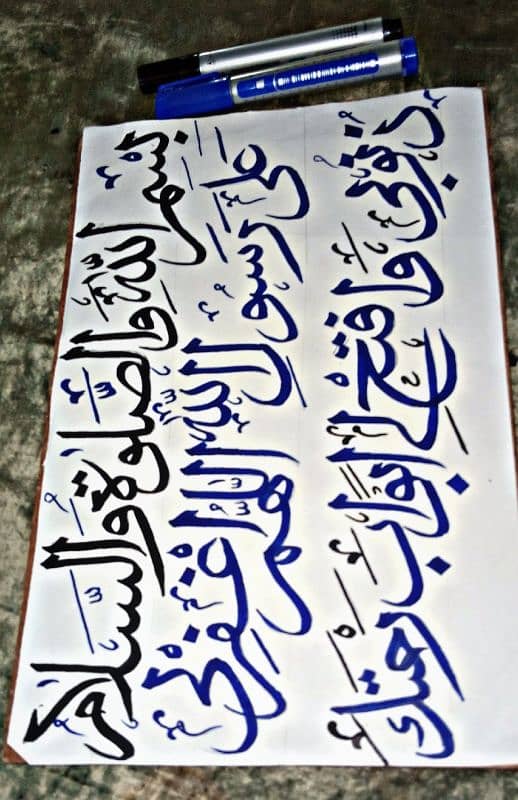 بِسْمِ اللّٰهِ وَالصَّلٰوةُ وَالسَّلَامُ
عَلٰى رَسُوْلِ اللّٰهِ اللّٰهُمَّ اغْفِرْلِيْ
ذُنُوْبِيْ وَافْتَحْ لِيْ اَبْوَابَ رَحْمَتِكَ